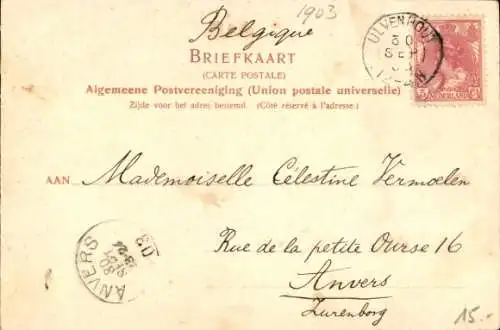 1903
Belgique
ULVENHOUT
30
SEP
BRIEFKAART
(CARTE POSTALE)
Algemeene Postvereeniging (Union postale universelle)
Zijde voor het adres bestemd. (Côté réservé à l'adresse.)
NEDERLAND
AAN Mademoiselle Célestine Vermoelen
Rue de la petite Ourse 16
Anvers
Zurenborg
ANVERS
30
SEPT
03
15.-